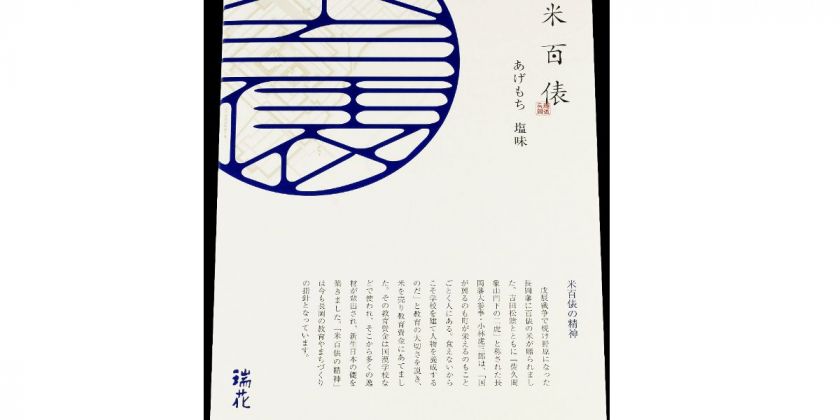 米百俵
あげもち 塩味
米百俵の精神
戊辰戦争で焼け野原になった
長岡藩に百俵の米が贈られまし
た。吉田松陰とともに「佐久間
象山門下の二虎」と称された長
岡藩大参事・小林虎三郎は、「国
が興るのも町が栄えるのもこと
ごとく人にある。食えないから
こそ学校を建て人物を養成する
のだ」と教育の大切さを説き、
米を売り教育資金にあてまし
た。その教育資金は国漢学校な
どで使われ、そこから多くの逸
材が輩出され、新生日本の礎を
築きました。「米百俵の精神」
は今も長岡の教育やまちづくり
の指針となっています。
瑞花